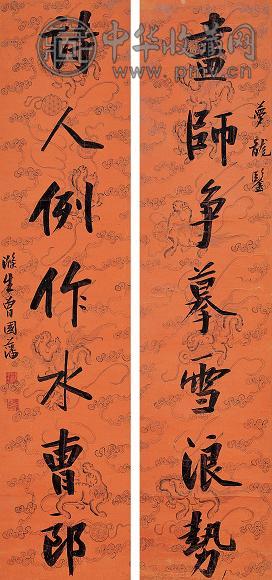 夢龍鑒
畫師争摹雪浪勢
詩人例作水曹郎
滌生曾國藩
中华收藏网